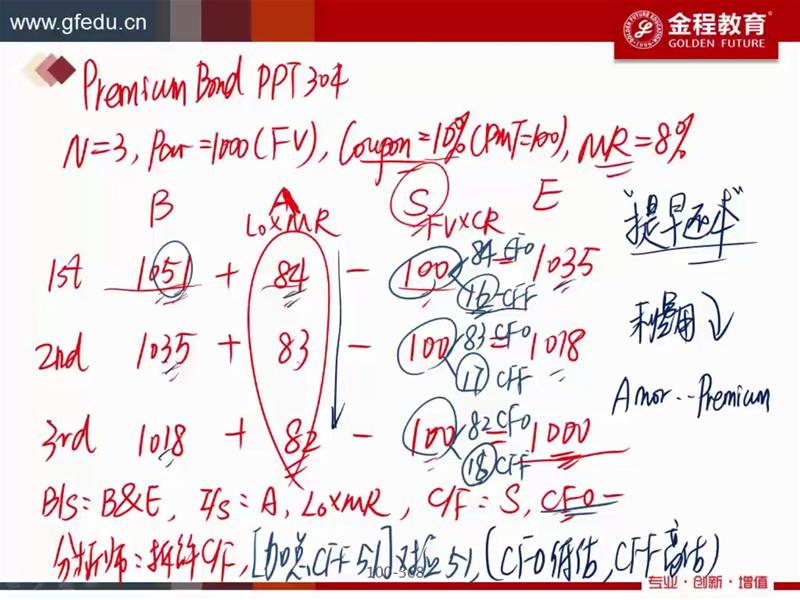 www.gfedu.cn
金程教育
GOLDEN FUTURE
Premium Bond PPT 304
N=3, Par=1000(FV), Coupon=10%(PMT=100), MR=8%
B A S E
L0×MR FV×CR
"提早还本"
1st 1051 + 84 - 100 = 1035
84 CFO
16 CFF
利费用↓
2nd 1035 + 83 - 100 = 1018
83 CFO
17 CFF
Amor..Premium
3rd 1018 + 82 - 100 = 1000
82 CFO
18 CFF
B/S=B&E, I/S=A, L0×MR, C/F=S, CFO-
分析师:拆解C/F,[加总CFF 51]对应51,(CFO低估,CFF高估)
100-368
专业·创新·增值